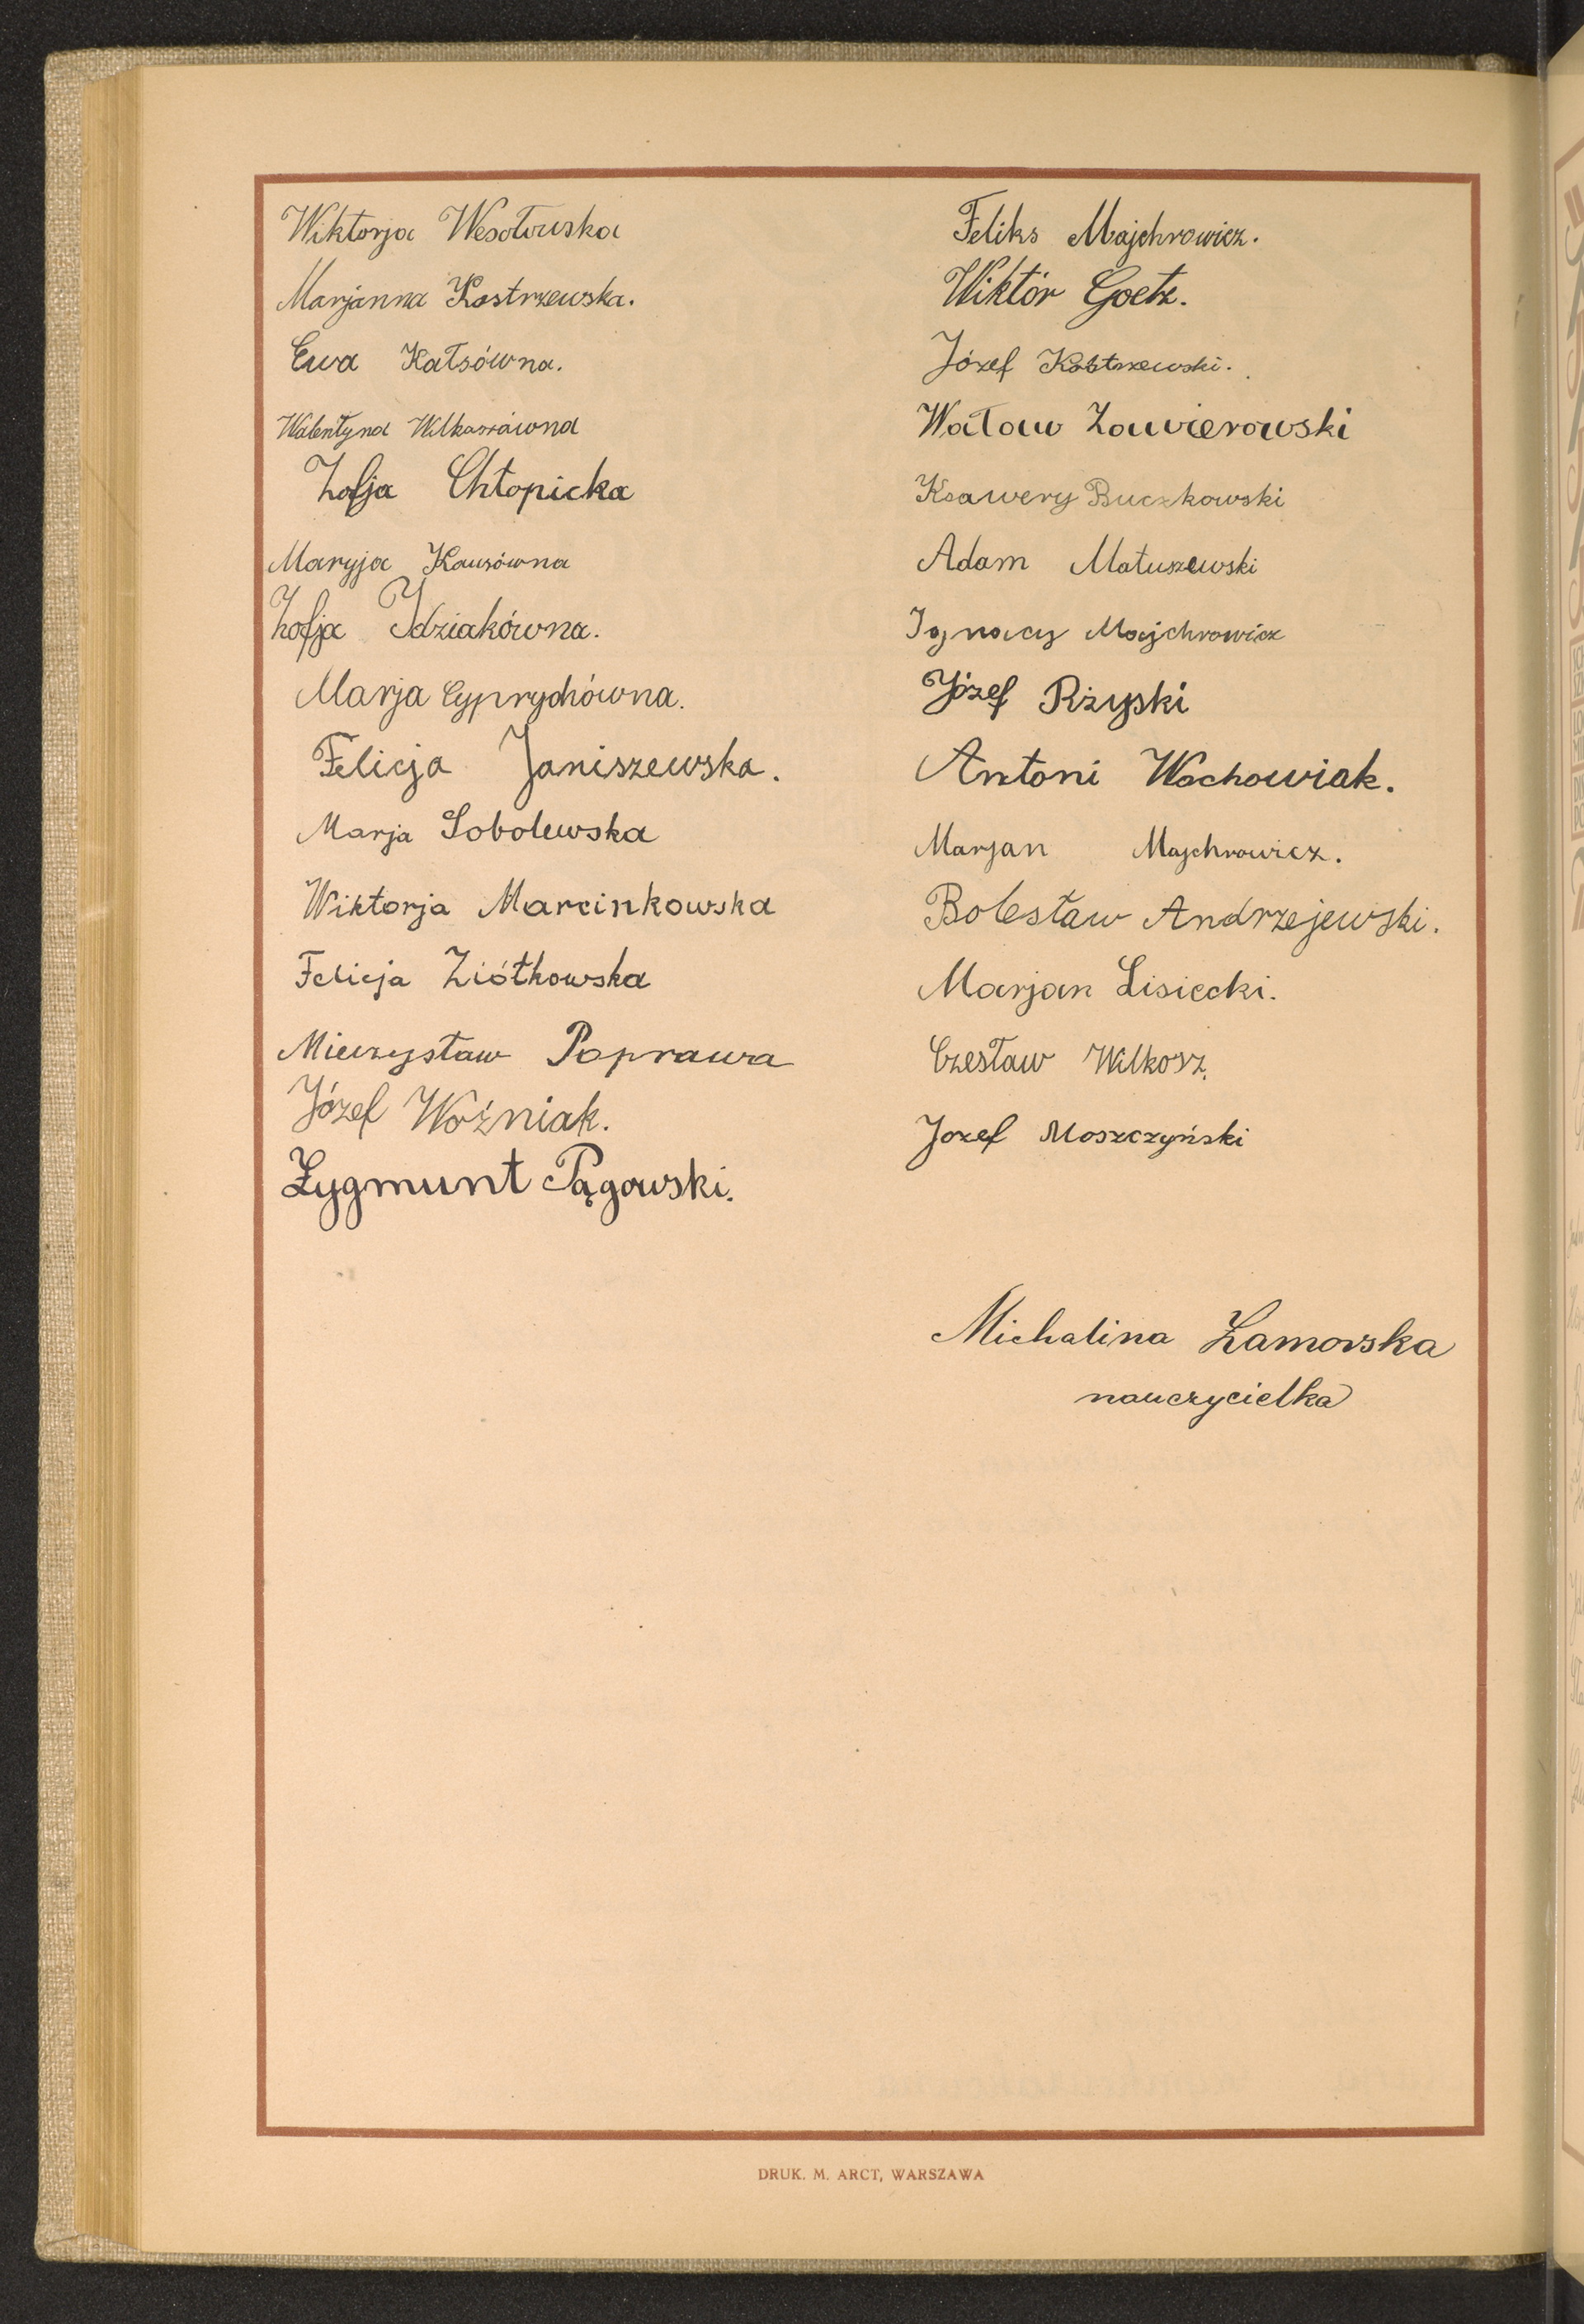 Wiktorja Wesołowska
Marjanna Kostrzewska.
Ewa Kałsówna.
Walentyna Wilkoszówna
Zofja Chłopicka
Maryja Kausówna
Zofja Idziakówna.
Marja Cyprychówna.
Felicja Janiszewska.
Marja Sobolewska
Wiktorja Marcinkowska
Felicja Ziółkowska
Mieczysław Poprawa
Józef Woźniak.
Zygmunt Pągowski.
Feliks Majchrowicz.
Wiktór Goetz.
Józef Kostrzewski.
Wacław Zawierowski
Ksawery Buczkowski
Adam Matuszewski
Ignacy Majchrowicz
Józef Rżyski
Antoni Wochowiak.
Marjan Majchrowicz.
Bolesław Andrzejewski.
Marjan Lisiecki.
Czesław Wilkosz.
Jozef Moszczyński
Michalina Zamorska
nauczycielka
DRUK. M. ARCT, WARSZAWA